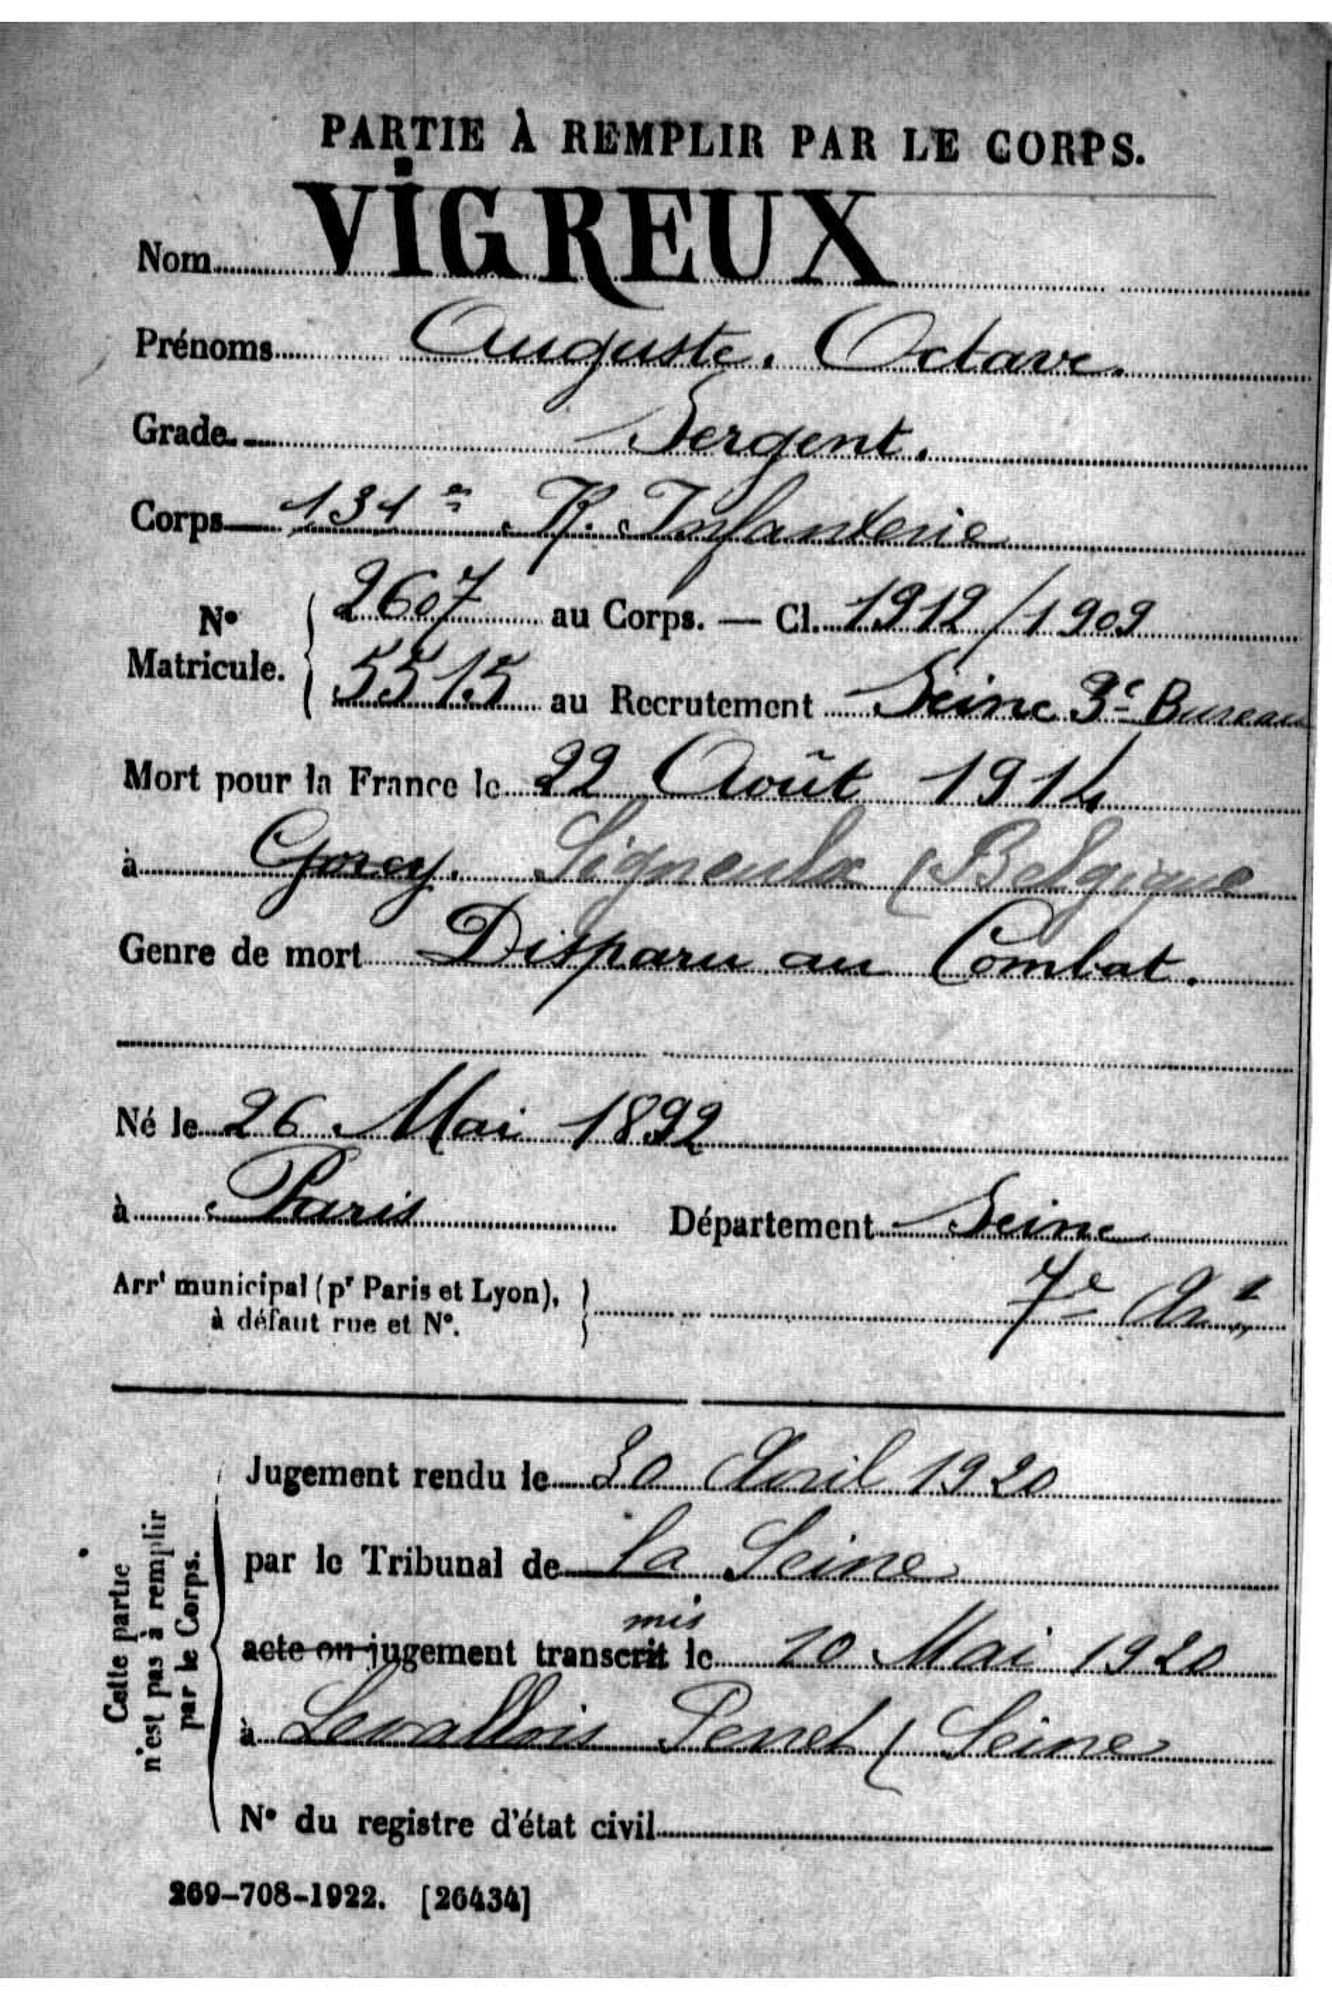 PARTIE À REMPLIR PAR LE CORPS.
Nom VIGREUX
Prénoms Auguste. Octave.
Grade Sergent.
Corps 131e R. Infanterie
N° Matricule. { 2607 au Corps. — Cl. 1912/1909
5515 au Recrutement Seine 3e Bureau
Mort pour la France le 22 Août 1914
à Gorcy. Signeulx (Belgique
Genre de mort Disparu au Combat.
Né le 26 Mai 1892
à Paris Département Seine
Arrt municipal (pr Paris et Lyon), à défaut rue et N°. } 7e Art
Cette partie n'est pas à remplir par le Corps.
Jugement rendu le 30 Avril 1920
par le Tribunal de la Seine
mis
acte ou jugement transcrit le 20 Mai 1920
à Levallois Perret (Seine
N° du registre d'état civil
269-708-1922. [26434]